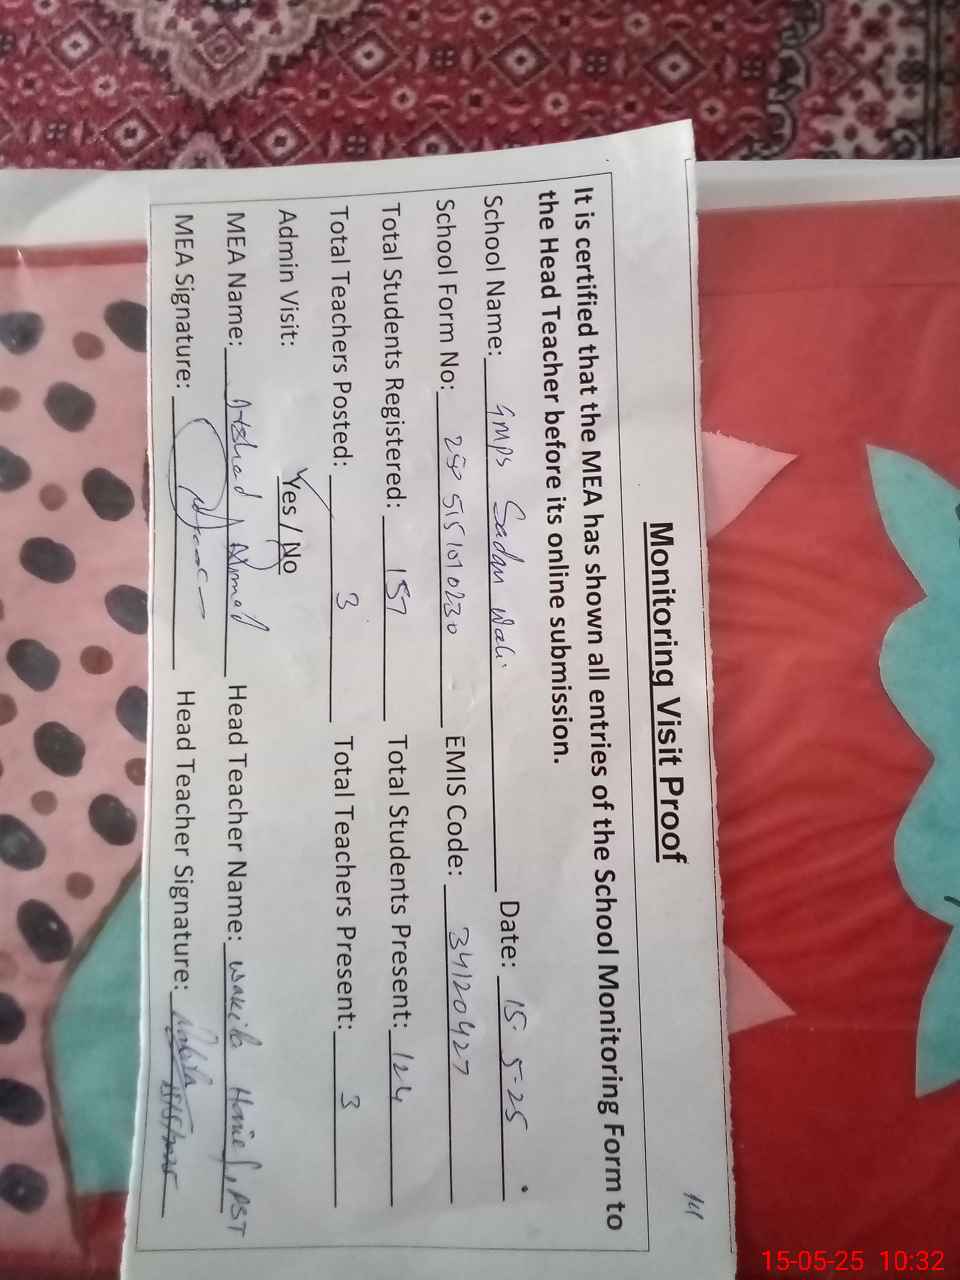 Monitoring Visit Proof
It is certified that the MEA has shown all entries of the School Monitoring Form to
the Head Teacher before its online submission.
School Name: GMPS Sadan Wali Date: 15-5-25
School Form No: 5151010230 EMIS Code: 34120427
Total Students Registered: 157 Total Students Present: 124
Total Teachers Posted: 3 Total Teachers Present: 3
Admin Visit: Yes / No
MEA Name: Arshad Ahmad Head Teacher Name: Hanief, PST
MEA Signature: Head Teacher Signature: 15/5/2025
15-05-25 10:32